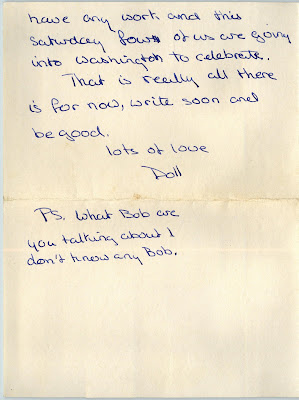 have any work and this
Saturday four of us are going
into Washington to celebrate.
That is really all there
is for now, write soon and
be good.
lots of love
Doll
PS. What Bob are
you talking about I
don't know any Bob.